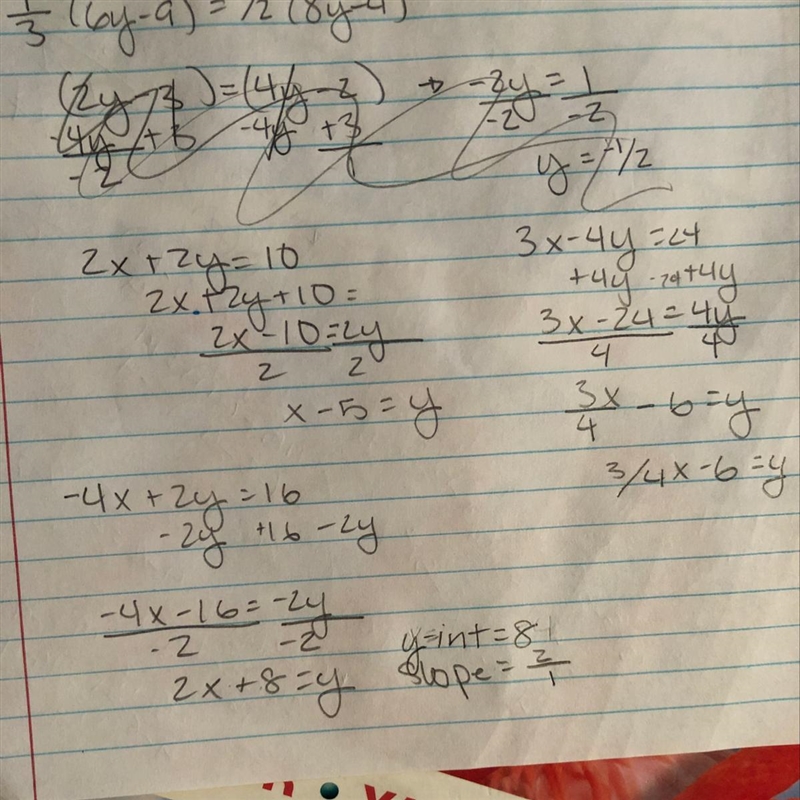 1/3 (6y-9) = 1/2 (8y-4)
(2y - 3) = (4y - 2) → -2y = 1
-4y + 3 -4y +3 -2 -2
-2 y = -1/2
2x + 2y = 10
2x + 2y + 10 =
2x - 10 = 2y
2 2
x - 5 = y
3x - 4y = 24
+4y -24 +4y
3x - 24 = 4y
4 4
3x/4 - 6 = y
3/4x - 6 = y
-4x + 2y = 16
-2y +16 -2y
-4x - 16 = -2y
-2 -2
2x + 8 = y
y-int = 8
slope = 2/1